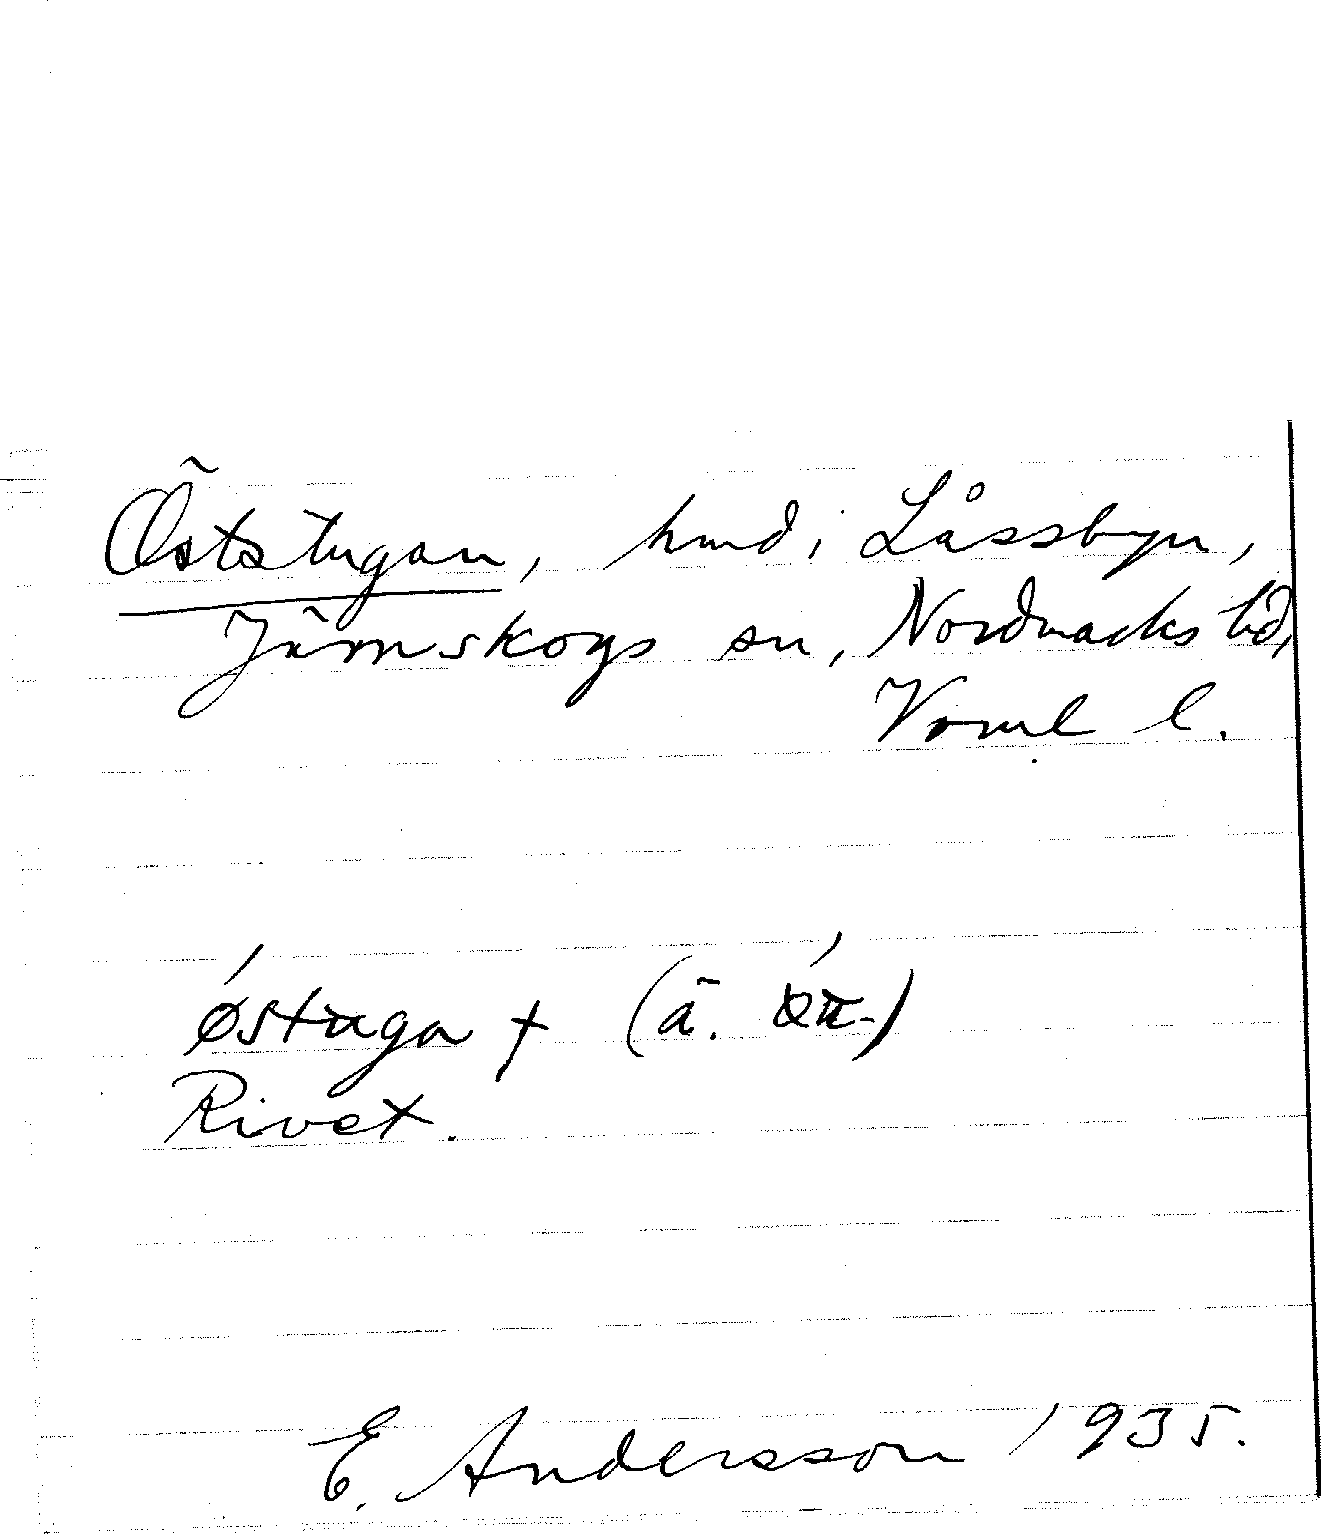 Öststugan, hmd i Låssbyn,
Järnskogs sn, Nordmarks hd,
Värml l.
østuga + (ä.
Rivet.
E. Andersson 1935.